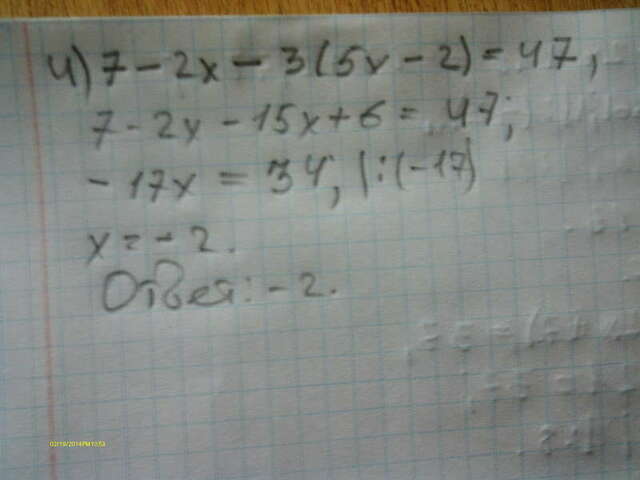 4) 7 - 2x - 3(5x - 2) = 47;
7 - 2x - 15x + 6 = 47;
- 17x = 34; |:(-17)
x = - 2.
Ответ: - 2.
03/19/2014